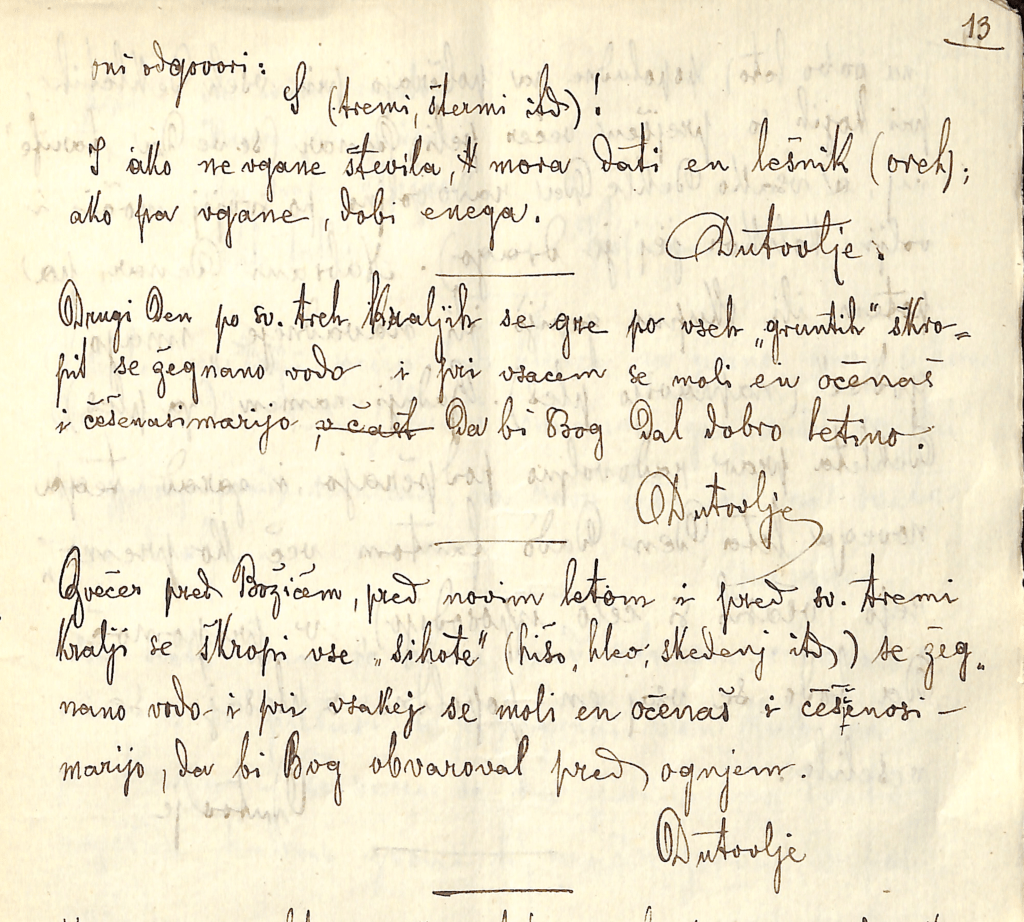 13
oni odgovori:
S (tremi, štermi itd)!
I ako ne vgane števila, mora dati en lešnik (oreh);
ako pa vgane, dobi enega.
Dutovlje.
Drugi den po sv. treh kraljih se gre po vseh „gruntih“ škro=
pit se žegnano vodo i pri vsacem se moli en očenaš
i češenasimarijo v čast da bi Bog dal dobro letino.
Dutovlje
Zvečer pred Božičem, pred novim letom i pred sv. tremi
kralji se škropi vse „sihote“ (hišo, hlev, skedenj itd) se žeg„
nano vodo i pri vsakej se moli en očenaš i češčenosi-
marijo, da bi Bog obvaroval pred ognjem.
Dutovlje